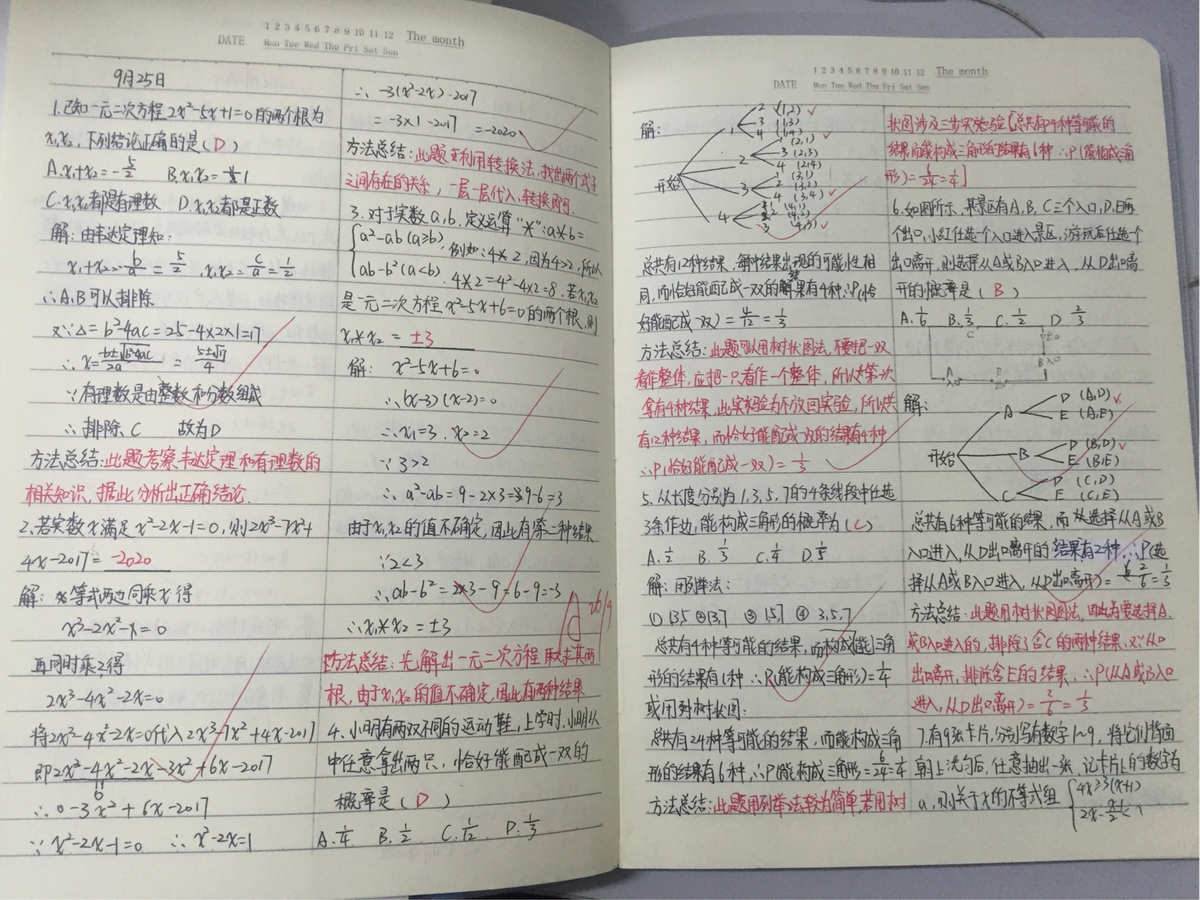 1 2 3 4 5 6 7 8 9 10 11 12 The month
DATE Mon Tue Wed Thu Fri Sat Sun
9月25日
1.已知一元二次方程2x²-5x+1=0的两个根为
x₁x₂,下列结论正确的是(D)
A.x₁+x₂=-5/2 B.x₁x₂=1
C.x₁x₂都是有理数 D.x₁x₂都是正数
解:由韦达定理知:
x₁+x₂=-b/a=5/2,x₁x₂=c/a=1/2
∴A、B可以排除
又∵Δ=b²-4ac=25-4×2×1=17
∴x=-b±√b²-4ac/2a=5±√17/4
∵有理数是由整数和分数组成
∴排除C 故为D
方法总结:此题考察韦达定理和有理数的
相关知识,据此分析出正确结论.
2.若实数x满足x²-2x-1=0,则2x³-7x²+
4x-2017=-2020
解:等式两边同乘x得
x³-2x²-x=0
再同时乘2得
2x³-4x²-2x=0
将2x³-4x²-2x=0代入2x³-7x²+4x-2017
即2x³-4x²-2x-3x²+6x-2017
0
∴0-3x²+6x-2017
∵x²-2x-1=0 ∴x²-2x=1
∴-3(x²-2x)-2017
=-3×1-2017=-2020
方法总结:此题要利用转换法,找出两个式子
之间存在的关系,一层一层代入,转换即可.
3.对于实数a、b,定义运算“*”:a*b=
{a²-ab(a≥b) ,例如:4*2,因为4>2,所以
ab-b²(a<b). 4*2=4²-4×2=8.若x₁x₂
是一元二次方程x²-5x+6=0的两个根,则
x₁*x₂=±3
解:x²-5x+6=0
∴(x-3)(x-2)=0
∴x₁=3,x₂=2
∵3>2
∴a²-ab=9-2×3=9-6=3
由于x₁x₂的值不确定,因此有第二种结果
∵2<3
∴ab-b²=2×3-9=6-9=-3
∴x₁*x₂=±3
方法总结:先解出一元二次方程,其两
根,由于x₁x₂的值不确定,因此有两种结果
4.小明有两双不同的运动鞋,上学时,小明从
中任意拿出两只,恰好能配成一双的
概率是(D)
A.1/4 B.1/2 C.1/12 D.1/3
1 2 3 4 5 6 7 8 9 10 11 12 The month
DATE Mon Tue Wed Thu Fri Sat Sun
解:
开始
1 2 (1,2)
3 (1,3)
4 (1,4)
2 1 (2,1)
3 (2,3)
4 (2,4)
3 1 (3,1)
2 (3,2)
4 (3,4)
4 1 (4,1)
2 (4,2)
3 (4,3)
总共有12种结果,每种结果出现的可能性相
同,而恰好能配成一双的结果有4种∴P(恰
好能配成一双)=4/12=1/3
方法总结:此题可以用树状图法,不要把一双
看作整体,应把一只看作一个整体,所以第一次
拿有4种结果,此实验为不放回实验,所以共
有12种结果,而恰好能配成一双的结果有4种
∴P(恰好能配成一双)=1/3
5.从长度分别为1、3、5、7的4条线段中任选
3条作边,能构成三角形的概率为(C)
A.1/2 B.1/3 C.1/4 D.1/5
解:用列举法:
①1.3.5 ②1.3.7 ③1.5.7 ④3.5.7
总共有4种等可能的结果,而构成能三角
形的结果有1种∴P(能构成三角形)=1/4
或用到树状图:
总共有24种等可能的结果,而能构成三角
形的结果有6种,∴P(能构成三角形=6/24=1/4
方法总结:此题用列举法较为简单,若用树
状图涉及三步实验【总共有24种等可能的
结果而能构成三角形的结果有6种∴P(能构成三角
形)=6/24=1/4】
6.如图所示,某景区有A、B、C三个入口,D、E两
个出口,小红任选一个入口进入景区,游玩后任选一个
出口离开,则选择从A或B入口进入,从D出口离
开的概率是(B)
A.1/6 B.1/3 C.1/2 D.2/3
解:
开始
A D (A,D)
E (A,E)
B D (B,D)
E (B,E)
C D (C,D)
E (C,E)
总共有6种等可能的结果,而选择从A或B
入口进入,从D出口离开的结果有2种,∴P(选
择从A或B入口进入,从D出口离开)=2/6=1/3
方法总结:此题用树状图法,因此为要选择A
或B入进入的,排除了含C的两种结果,又∵从D
出口离开,排除含E的结果,∴P(从A或B入口
进入,从D出口离开)=2/6=1/3
7.有9张卡片,分别写有数字1~9,将它们背面
朝上洗匀后,任意抽出一张,记卡片上的数字为
a,则关于x的不等式组{4x≥3(x+1)